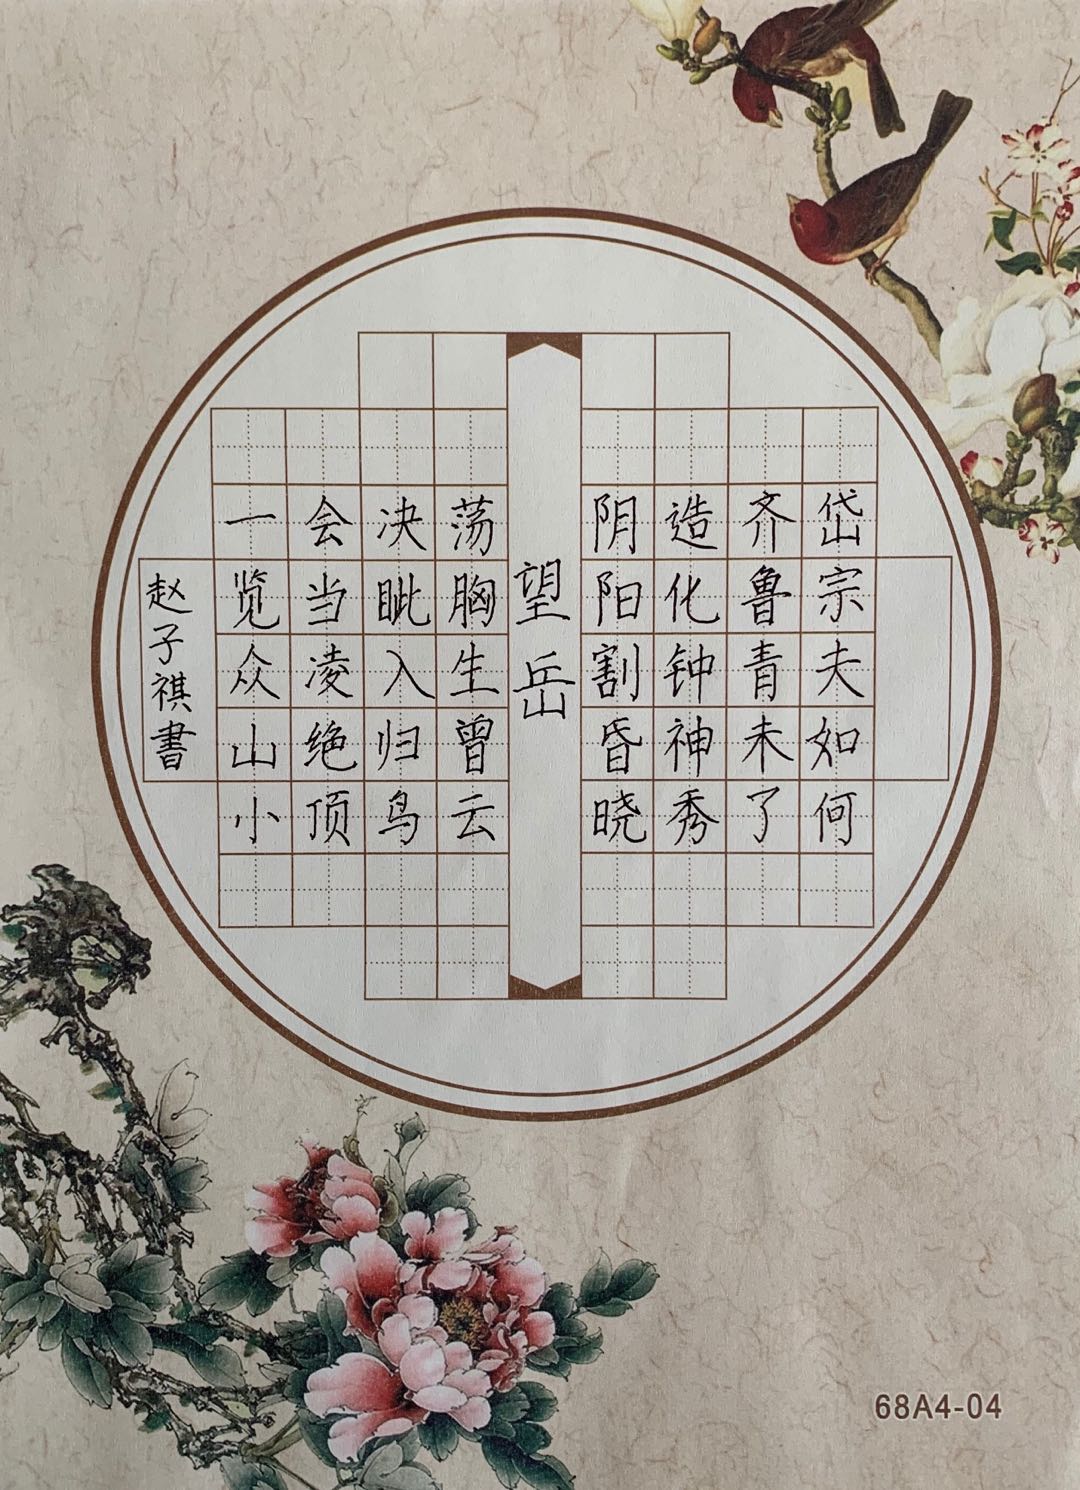 岱宗夫如何
齐鲁青未了
造化钟神秀
阴阳割昏晓
望岳
荡胸生曾云
决眦入归鸟
会当凌绝顶
一览众山小
赵子祺書
68A4-04